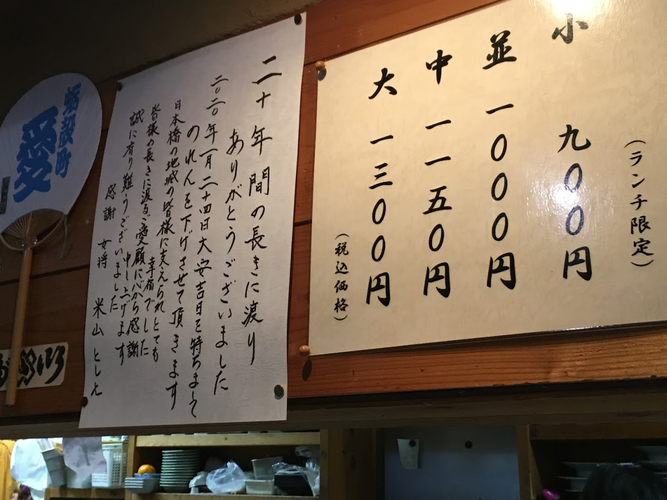 (ランチ限定)
小 九〇〇円
並 一〇〇〇円
中 一一五〇円
大 一三〇〇円
(税込価格)
二十年間の長きに渡り
ありがとうございました
二〇二〇年一月二十四日大安吉日を持ちまして
のれんを下げさせて頂きます
日本橋の地域の皆様に支えられとても
幸福でした
皆様の長きに渡る御愛顧に心から感謝
申し上げます
誠に有り難うございました
感謝 女将 米山 とし
蛎殻町
愛